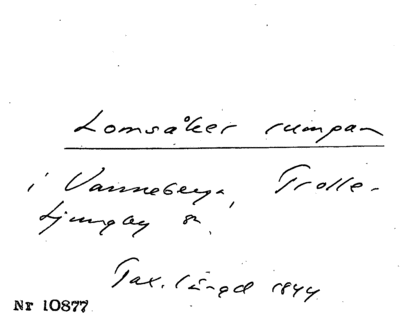 Lomsåker rumpan
i Vanneberga, Trolle-
Ljungby sn.
Tax. längd 1844
Nr 10877